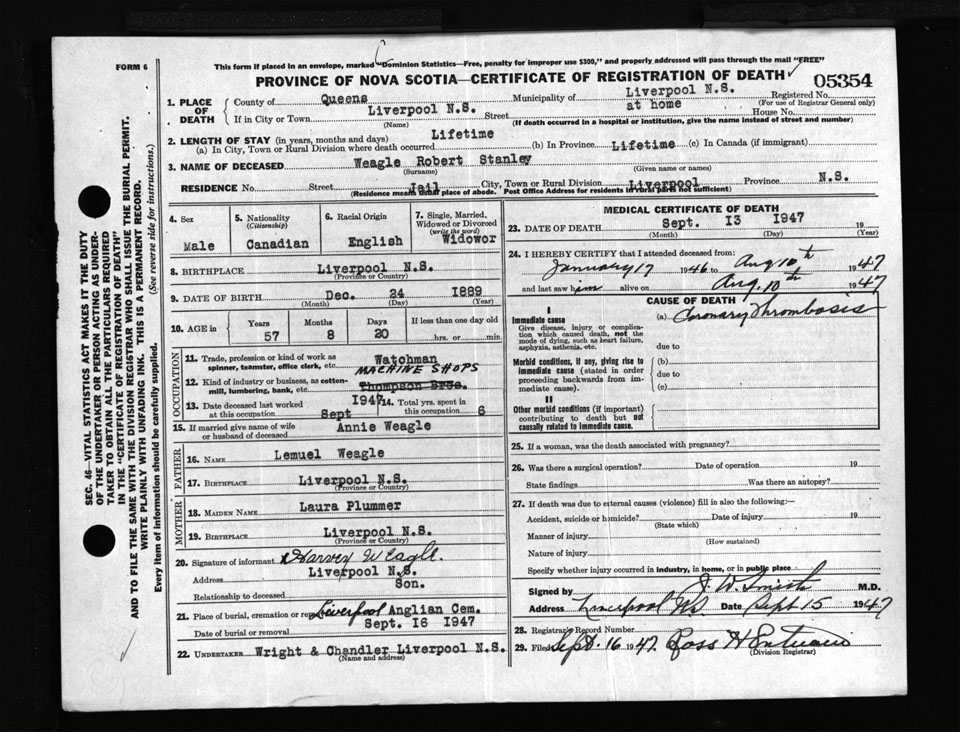 FORM 6
This form if placed in an envelope, marked "Dominion Statistics—Free, penalty for improper use $300," and properly addressed will pass through the mail "FREE"
PROVINCE OF NOVA SCOTIA—CERTIFICATE OF REGISTRATION OF DEATH
05354
1. PLACE OF DEATH
County of Queens Municipality of Liverpool N.S. Registered No.
(For use of Registrar General only)
If in City or Town Liverpool N.S. Street at home House No.
(Name) (If death occurred in a hospital or institution, give the name instead of street and number)
2. LENGTH OF STAY (in years, months and days)
(a) In City, Town or Rural Division where death occurred Lifetime (b) In Province Lifetime (c) In Canada (if immigrant)
3. NAME OF DECEASED Weagle Robert Stanley
(Surname) (Given name or names)
RESIDENCE No. Street Jail City, Town or Rural Division Liverpool Province N.S.
(Residence means usual place of abode. Post Office Address for residents in rural parts not sufficient)
4. Sex Male
5. Nationality (Citizenship) Canadian
6. Racial Origin English
7. Single, Married, Widowed or Divorced (write the word) Widowor
8. BIRTHPLACE Liverpool N.S.
(Province or Country)
9. DATE OF BIRTH Dec. 24 1889
(Month) (Day) (Year)
10. AGE in Years Months Days If less than one day old
57 8 20 hrs. or min.
OCCUPATION
11. Trade, profession or kind of work as spinner, teamster, office clerk, etc. Watchman
MACHINE SHOPS
12. Kind of industry or business, as cotton-mill, lumbering, bank, etc. Thompson Bros.
13. Date deceased last worked at this occupation Sept 1947
14. Total yrs. spent in this occupation 6
15. If married give name of wife or husband of deceased Annie Weagle
FATHER
16. NAME Lemuel Weagle
17. BIRTHPLACE Liverpool N.S.
(Province or Country)
MOTHER
18. MAIDEN NAME Laura Plummer
19. BIRTHPLACE Liverpool N.S.
(Province or Country)
20. Signature of informant Harvey Weagle.
Address Liverpool N.S.
Relationship to deceased Son.
21. Place of burial, cremation or Liverpool Anglian Cem.
Date of burial or removal Sept. 16 1947
22. UNDERTAKER Wright & Chandler Liverpool N.S.
(Name and address)
MEDICAL CERTIFICATE OF DEATH
23. DATE OF DEATH Sept. 13 1947 19
(Month) (Day) (Year)
24. I HEREBY CERTIFY that I attended deceased from:
January 17 1946 to Aug 10th 1947
and last saw him alive on Aug. 10th 1947
CAUSE OF DEATH
I
Immediate cause (a) Coronary Thrombosis
Give disease, injury or complication which caused death, not the mode of dying, such as heart failure, asphyxia, asthenia, etc.
due to
Morbid conditions, if any, giving rise to immediate cause (stated in order proceeding backwards from immediate cause).
(b)
due to
(c)
II
Other morbid conditions (if important) contributing to death but not causally related to immediate cause.
25. If a woman, was the death associated with pregnancy?
26. Was there a surgical operation? Date of operation 19
State findings Was there an autopsy?
27. If death was due to external causes (violence) fill in also the following:—
Accident, suicide or homicide? Date of injury 19
(State which)
Manner of injury
(How sustained)
Nature of injury
Specify whether injury occurred in industry, in home, or in public place
Signed by J. W. Smith M.D.
Address Liverpool NS Date Sept 15 1947
28. Registrar's Record Number
29. Filed Sept. 16 1947 Ross H
(Division Registrar)
SEC. 46—VITAL STATISTICS ACT MAKES IT THE DUTY
OF THE UNDERTAKER OR PERSON ACTING AS UNDER-
TAKER TO OBTAIN ALL THE PARTICULARS REQUIRED
IN THE "CERTIFICATE OF REGISTRATION OF DEATH"
AND TO FILE THE SAME WITH THE DIVISION REGISTRAR WHO SHALL ISSUE THE BURIAL PERMIT.
WRITE PLAINLY WITH UNFADING INK. THIS IS A PERMANENT RECORD.
Every item of information should be carefully supplied. (See reverse side for instructions.)